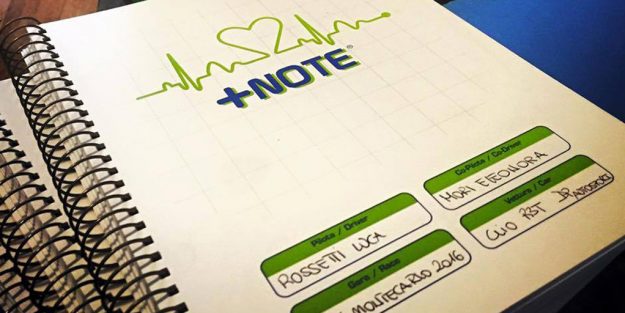 +NOTE®
Pilota / Driver
ROSSETTI LUCA
Co-Pilota / Co-Driver
MORI ELEONORA
Gara / Race
MONTECARLO 2016
Vettura / Car
CLIO R3T